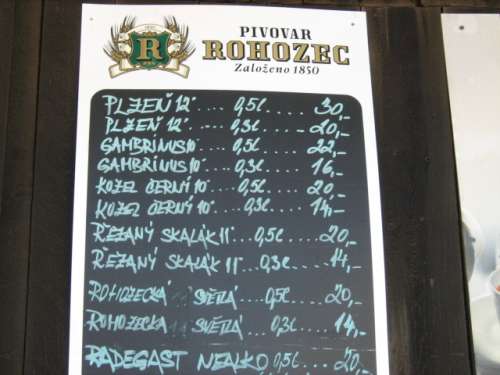 R
PIVOVAR
ROHOZEC
Založeno 1850
PLZEŇ 12°.... 0,5l... 30,-
PLZEŇ 12°.... 0,3l.... 20,-
GAMBRINUS 10°.... 0,5l.... 22,-
GAMBRINUS 10°.... 0,3l.... 16,-
KOZEL ČERNÝ 10°... 0,5l.... 20,-
KOZEL ČERNÝ 10°... 0,3l.... 14,-
ŘEZANÝ SKALÁK 11°.. 0,5l.... 20,-
ŘEZANÝ SKALÁK 11°...0,3l.... 14,-
ROHOZECKÁ 11° SVĚTLÁ...0,5l... 20,-
ROHOZECKÁ 11° SVĚTLÁ...0,3l... 14,-
RADEGAST NEALKO 0,5l... 20,-